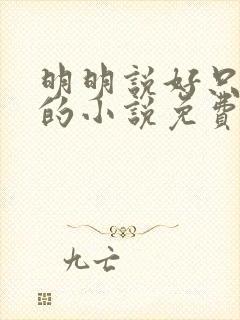 明明說好只
的小說免費
九亡